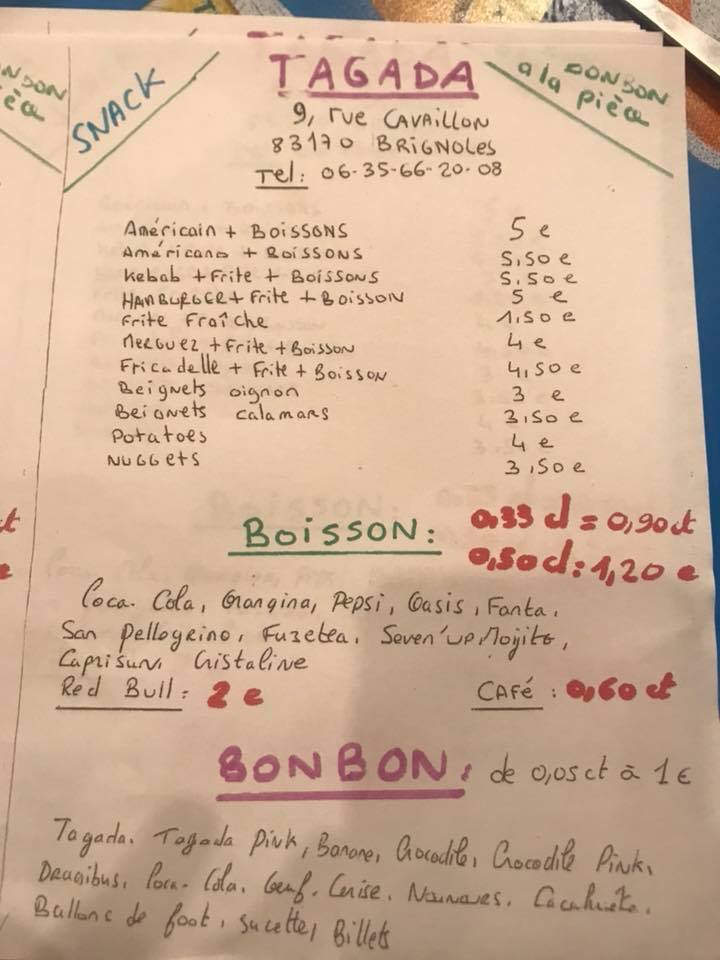 SNACK
TAGADA
BONBON
a la pièce
9, rue CAVAILLON
83170 BRIGNOLES
Tel: 06-35-66-20-08
Américain + BOISSONS 5 e
Américano + BOISSONS 5,50 e
Kebab + Frite + BOISSONS 5,50 e
HAMBURGER + Frite + BOISSON 5 e
Frite Fraîche 1,50 e
Merguez + Frite + Boisson 4 e
Fricadelle + Frite + Boisson 4,50 e
Beignets oignon 3 e
Beignets calamars 3,50 e
Potatoes 4 e
NUGGets 3,50 e
BOISSON: 0,33 cl = 0,90ct
0,50cl: 1,20 e
Coca-Cola, Orangina, Pepsi, Oasis, Fanta,
San Pellegrino, Fuzetea, Seven'up, Mojito,
Caprisun, Cristaline
Red Bull: 2 e CAFé: 0,60 ct
BONBON: de 0,05ct à 1€
Tagada, Tagada Pink, Banane, Crocodile, Crocodile Pink,
Dragibus, Coca-Cola, Oeuf, Cerise, Nounours, Cacahuete,
Ballons de foot, sucettes, Billets